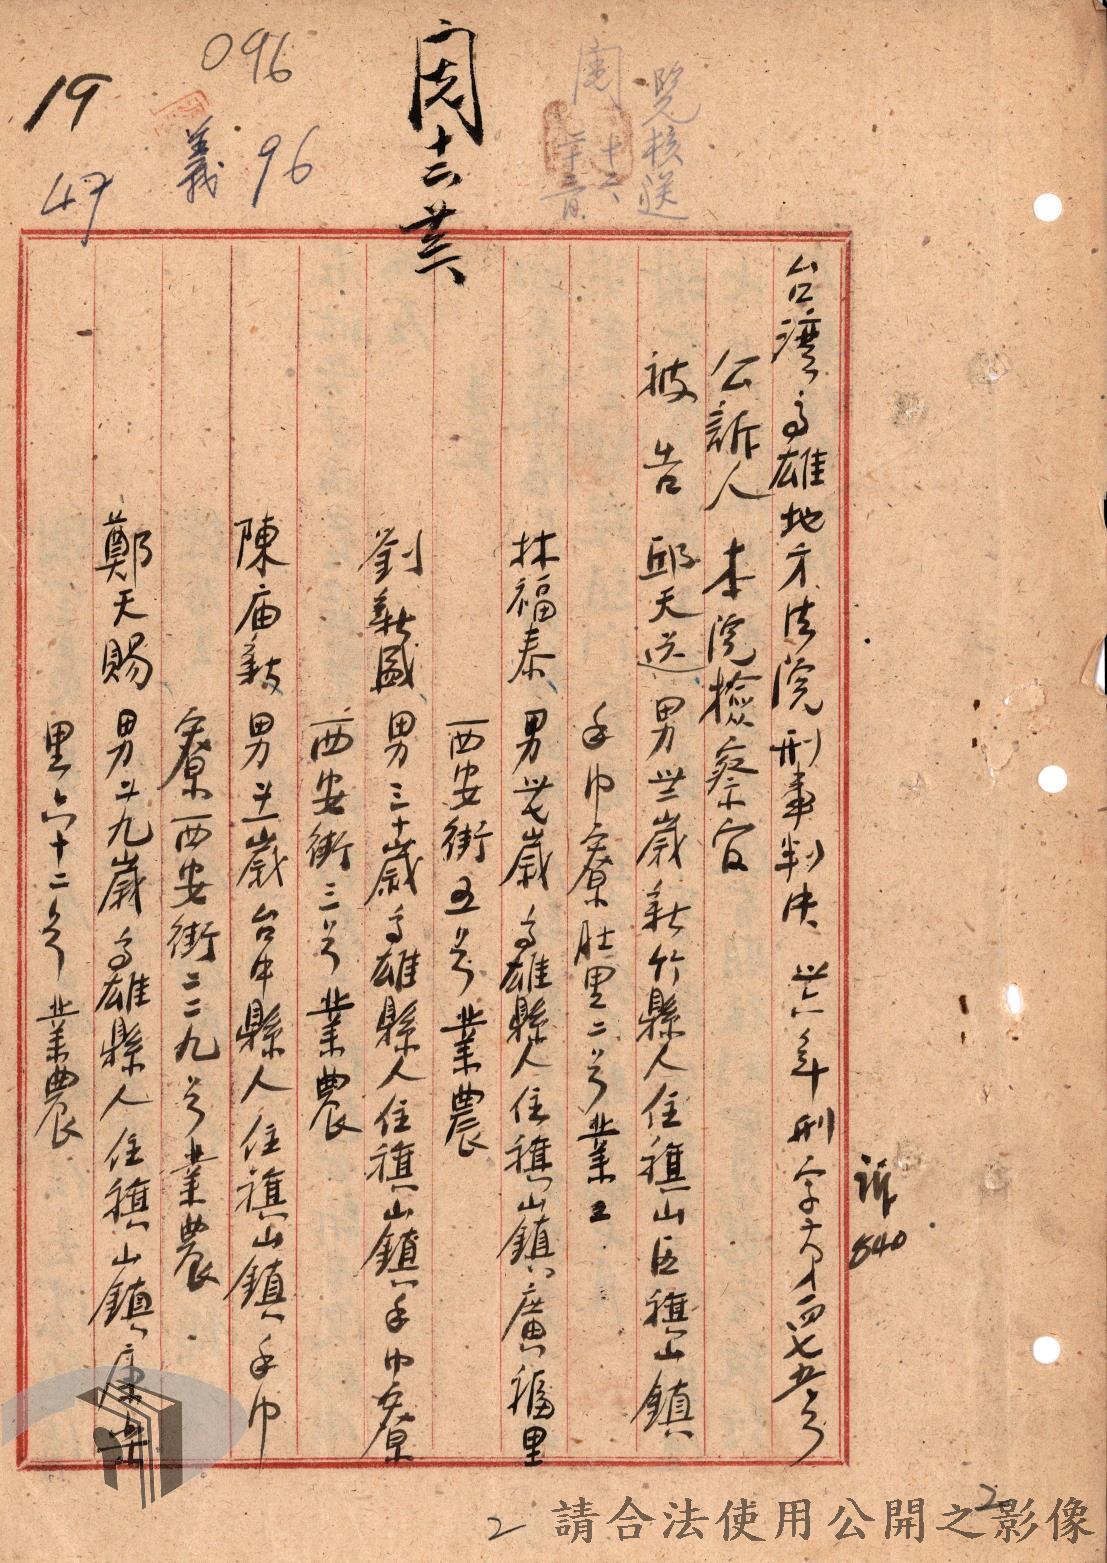 096
19
義 96
47
周 十二 廿六
覽核送
台灣高雄地方法院刑事判決 卅六年刑字第四七五號
訴
840
公訴人 本院檢察官
被告 邱天送 男 卅三歲 新竹縣人住旗山區旗山鎮
手巾寮 里二号業工
林福泰 男 卅七歲 高雄縣人住旗山鎮廣福里
西安街五号業農
劉新國 男三十歲高雄縣人住旗山鎮手巾寮
西安街三号業農
陳庙新 男 歲台中縣人住旗山鎮手巾
寮西安街二二九号業農
鄭天賜 男廿九歲高雄縣人住旗山鎮
里六十二号業農
2
2
請合法使用公開之影像